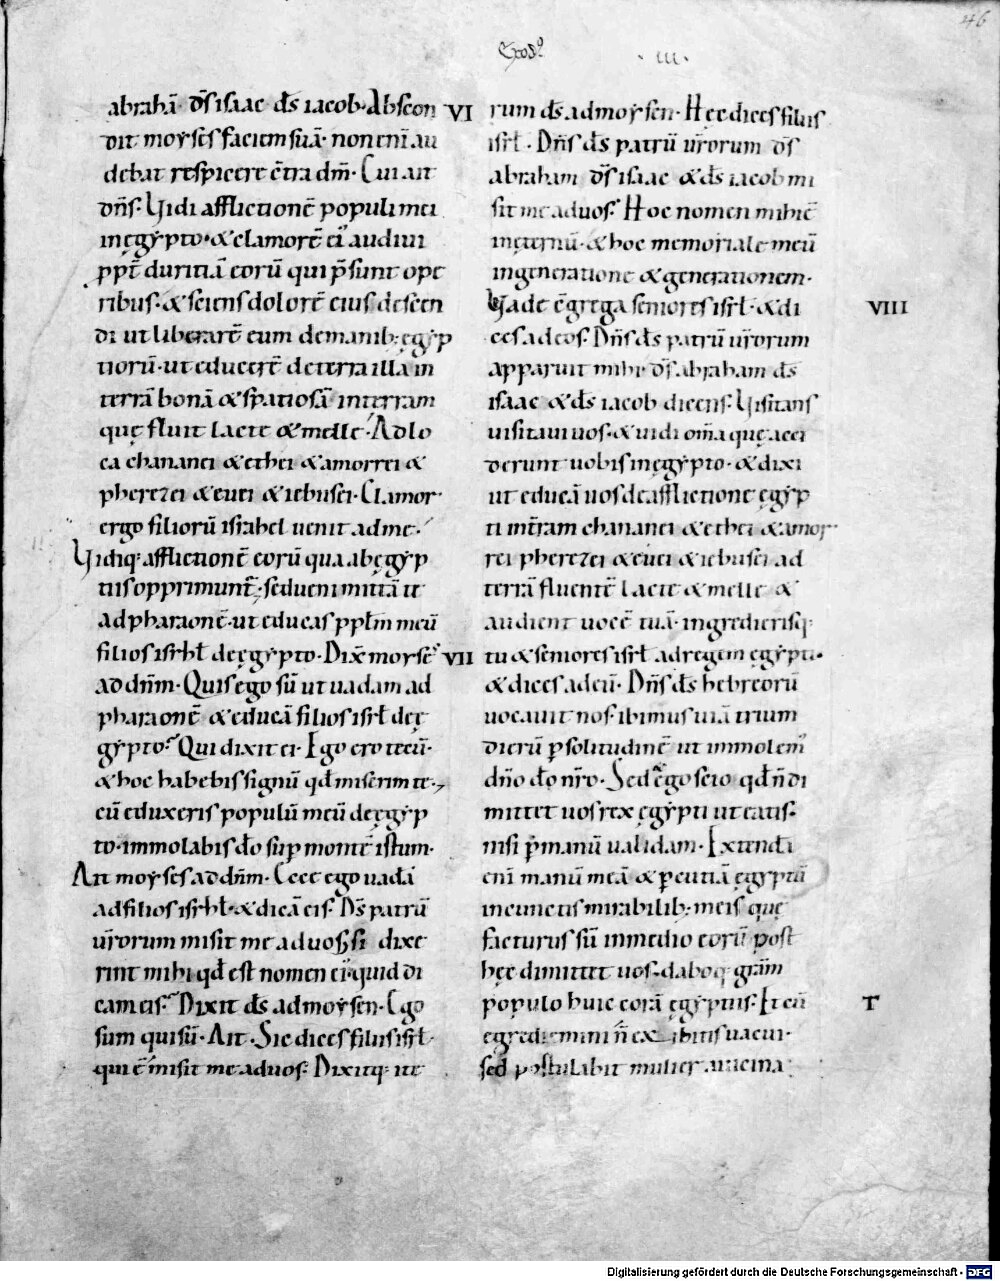 46
Exod⁹
·III·
abrahā· d̄s isaac· d̄s iacob· Abscon
dit moyses faciem suā· non enī au
debat respicere c̄tra dm̄· Cui ait
dn̄s· Vidi afflictionē populi mei
in ęgypto· & clamorē ei᾽ audiui
ppt̄ duritiā eorū qui p̄sunt ope
ribus· & sciens dolorē eius descen
di ut liberarē eum de manib; ęgyp
tiorū· ut educerē de terra illa in
terrā bonā & spatiosā· in terram
quę fluit lacte & melle· Ad lo
ca chananei & ethei & amorrei &
pherezei & euei & iebusei· Clamor
ergo filiorū israhel uenit ad me·
Vidiq; afflictionē eorū qua ab ęgyp
tiis opprimunt̄· sed ueni mittā te
ad pharaonē· ut educas ppl̄m meū
filios isrhl̄ de ęgypto· Dix̄ moyses
ad dn̄m· Quis ego sū ut uadam ad
pharaonē & educā filios isrl̄ de ę
gypto? Qui dixit ei· Ego ero tecū·
& hoc habebis signū qd̄ miserim te·
cū eduxeris populū meū de ęgyp
to· immolabis d̄o sup montē istum·
Ait moyses ad dn̄m· Ecce ego uadā
ad filios isrhl̄· & dicā eis· D̄s patrū
ur̄orum misit me ad uos· si dixe
rint mihi qd̄ est nomen ei᾽ quid di
cam eis? Dixit d̄s ad moysen· Ego
sum qui sū· Ait· Sic dices filiis isrl̄·
qui ē misit me ad uos· Dixitq; ite
VI
VII
rum d̄s ad moysen· Hęc dices filiis
isrl̄· Dn̄s d̄s patrū ur̄orum d̄s
abraham d̄s isaac & d̄s iacob mi
sit me ad uos· Hoc nomen mihi ē
in ęternū· & hoc memoriale meū
in generatione & generationem·
Vade c̄grega seniores isrl̄· & di
ces ad eos· Dn̄s d̄s patrū ur̄orum
apparuit mihi· d̄s abraham d̄s
isaac & d̄s iacob dicens· Visitans
uisitaui uos· & uidi om̄a quę acci
derunt uobis in ęgypto· & dixi
ut educā uos de afflictione ęgyp
ti in t̄ram chananei & ethei & amor
rei pherezei & euei & iebusei ad
terrā fluentē lacte & melle &
audient uocē tuā· ingredierisq;
tu & seniores isrl̄ ad regem ęgypti·
& dices ad eū· Dn̄s d̄s hebreorū
uocauit nos· ibimus uiā trium
dierū p solitudinē ut immolem᾽
dn̄o d̄o nr̄o· Sed ego scio qd̄ n̄ di
mittet uos rex ęgypti ut eatis·
nisi p̄ manū ualidam· Extendā
enī manū meā & p̄cutiā ęgyptū
in cunctis mirabilib; meis quę
facturus sū in medio eorū post
hęc dimittet uos· daboq; grām
populo huic corā ęgyptiis· Et cū
egrediemini n̄ exibitis uacui·
sed postulabit mulier a uicina
VIII
T
Digitalisierung gefördert durch die Deutsche Forschungsgemeinschaft - DFG